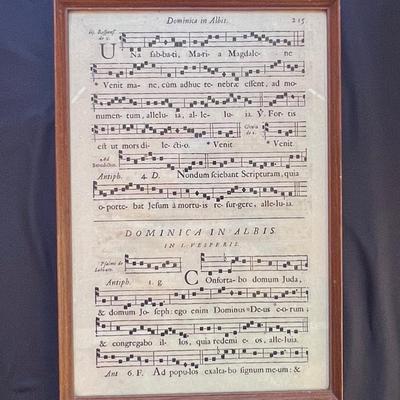 Dominica in Albis. 215
iij. Respons.
de 2.
UNa sab-ba-ti, Ma-ri-a Magdale- ne
* Venit ma-ne, cùm adhuc te-nebræ essent, ad mo-
numen-tum, allelu-ia, al-le-lu- ia. ℣. For-tis
Gloria
de 2.
est ut mors di-le-ctio. * Venit * Venit
Ad
Benedictus.
Antiph. 4. D. Nondum sciebant Scripturam, quia
o-porte-bat Jesum à mortu-is re-surge-re, alle-lu-ia.
DOMINICA IN ALBIS.
IN I. VESPERIS.
Psalmi de
Sabbato.
Antiph. 1. g. COnforta-bo domum Juda,
& domum Jo-seph: ego enim Dominus Deus e-o-rum;
& congregabo il-los, quia redemi e-os, alle-luia.
Ant 6. F. Ad populos exalta-bo signum me-um: &